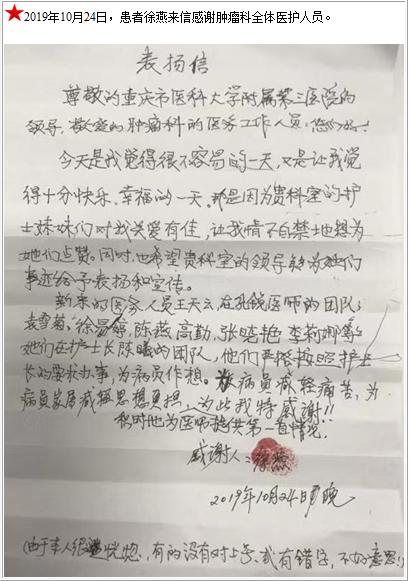 ★2019年10月24日，患者徐燕来信感谢肿瘤科全体医护人员。
表扬信
尊敬的重庆市医科大学附属第三医院的
领导，敬爱的肿瘤科的医务工作人员：您们好！
今天是我觉得很不容易的一天，又是让我觉
得十分快乐、幸福的一天。那是因为贵科室的护
士妹妹们对我关爱有佳，让我情不自禁地想为
她们点赞。同时，也希望贵科室的领导能为她们
事迹给予表扬和宣传。
新来的医务人员王天云在孔钱医师的团队；
袁雪菊、徐易婷，陈燕，高勤，张晓艳，李莉娜等
她们在护士长陈曦的团队，他们严格按照护士
长的要求办事，为病员作想。为病员减轻痛苦，为
病员家属减轻思想负担，为此我特感谢!!
积时他为医师提供第一直情况。
感谢人：徐燕
2019年10月24日晚
(由于本人很恍惚，有的没有对上号，或有错字，不好意思!)